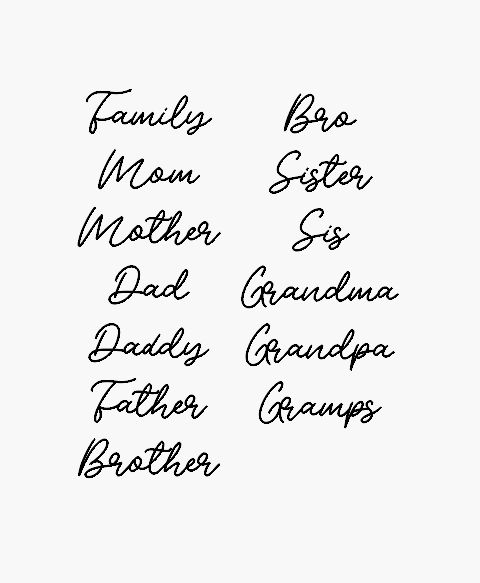 Family
Mom
Mother
Dad
Daddy
Father
Brother
Bro
Sister
Sis
Grandma
Grandpa
Gramps